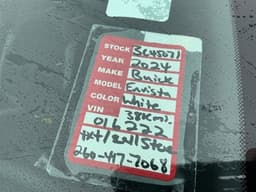 STOCK SC45071
YEAR 2024
MAKE Buick
MODEL Envista
COLOR White
VIN 38Kmi
016222
260-417-7068